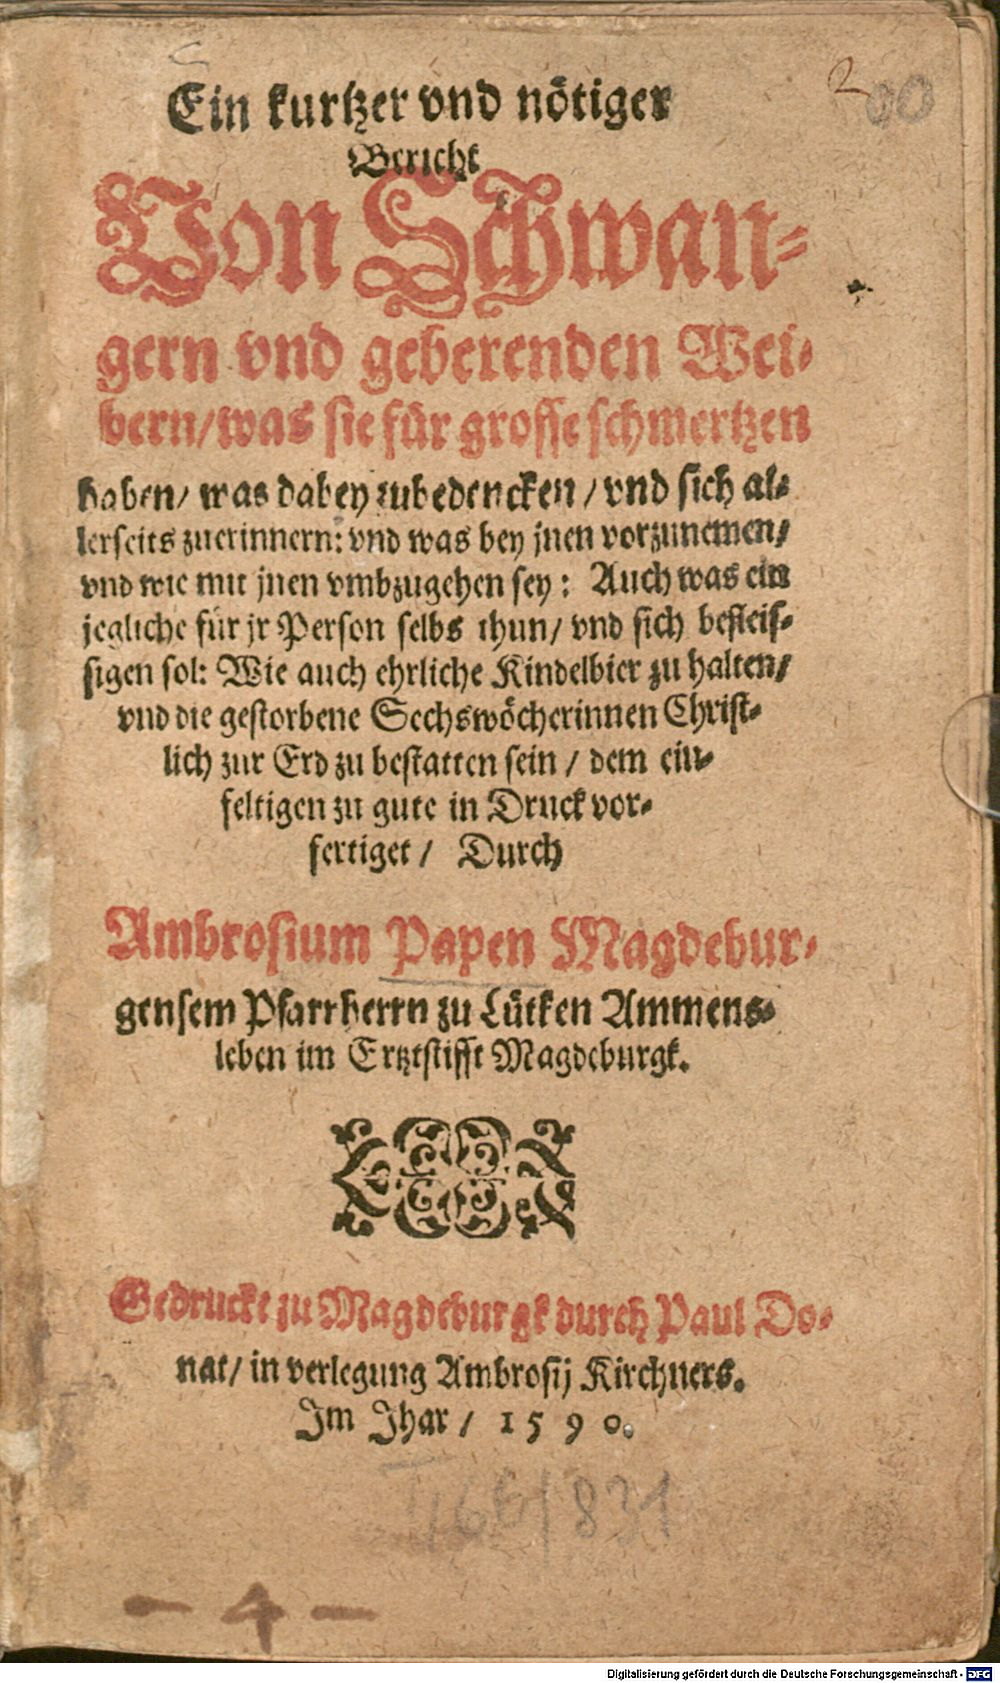 Ein kurtzer vnd nötiger
Bericht
Von Schwan-
gern vnd geberenden Wei-
bern/was sie für grosse schmertzen
haben/ was dabey zubedencken/ vnd sich al-
lerseits zuerinnern: vnd was bey jnen vorzunemen/
vnd wie mit jnen vmbzugehen sey: Auch was ein
jegliche für jr Person selbs thun/ vnd sich befleis-
sigen sol: Wie auch ehrliche Kindelbier zu halten/
vnd die gestorbene Sechswöcherinnen Christ-
lich zur Erd zu bestatten sein / dem ein-
feltigen zu gute in Druck vor-
fertiget / Durch
Ambrosium Papen Magdebur-
gensem Pfarrherrn zu Lütken Ammens-
leben im Ertzstifft Magdeburgk.
Gedruckt zu Magdeburgk durch Paul Do-
nat/ in verlegung Ambrosij Kirchners.
Im Jhar / 1590.
166/831
- 4 -
Digitalisierung gefördert durch die Deutsche Forschungsgemeinschaft - DFG